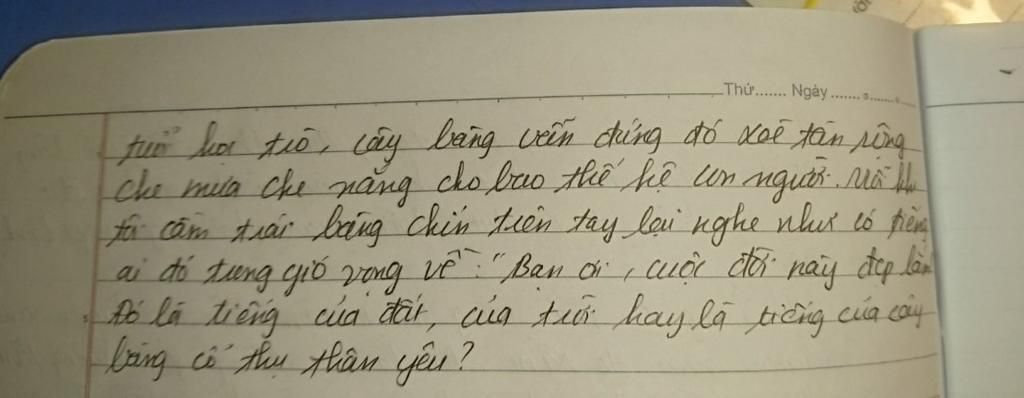 Thứ....... Ngày.................
tuổi học trò, cây bàng vẫn đứng đó xoè tán rộng
che mưa che nắng cho bao thế hệ con người. Mỗi khi
tôi cầm trái bàng chín trên tay lại nghe như có tiếng
ai đó trong gió vọng về: "Bạn ơi, cuộc đời này đẹp lắm
Đó là tiếng của đất, của trời hay là tiếng của cây
bàng cổ thụ thân yêu?